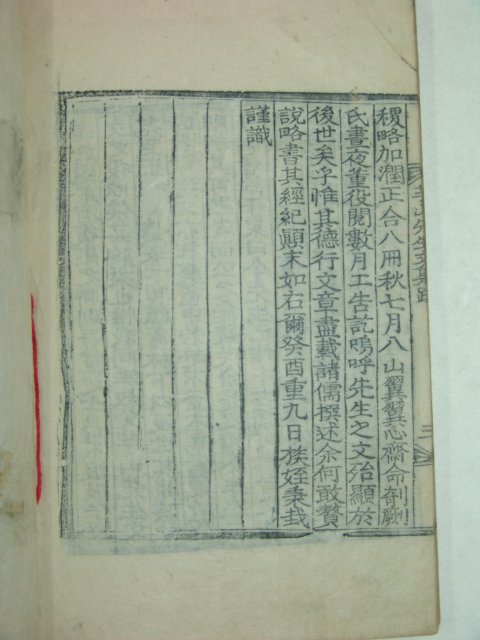 稷略加潤正合八冊秋七月八山翼翼心齋命剞劂
氏晝夜董役閱數月工告訖嗚呼先生之文殆顯於
後世矣乎惟其德行文章盡載諸儒撰述余何敢贅
說略書其經紀顚末如右爾癸酉重九日族姪秉
謹識
先生文集跋
二